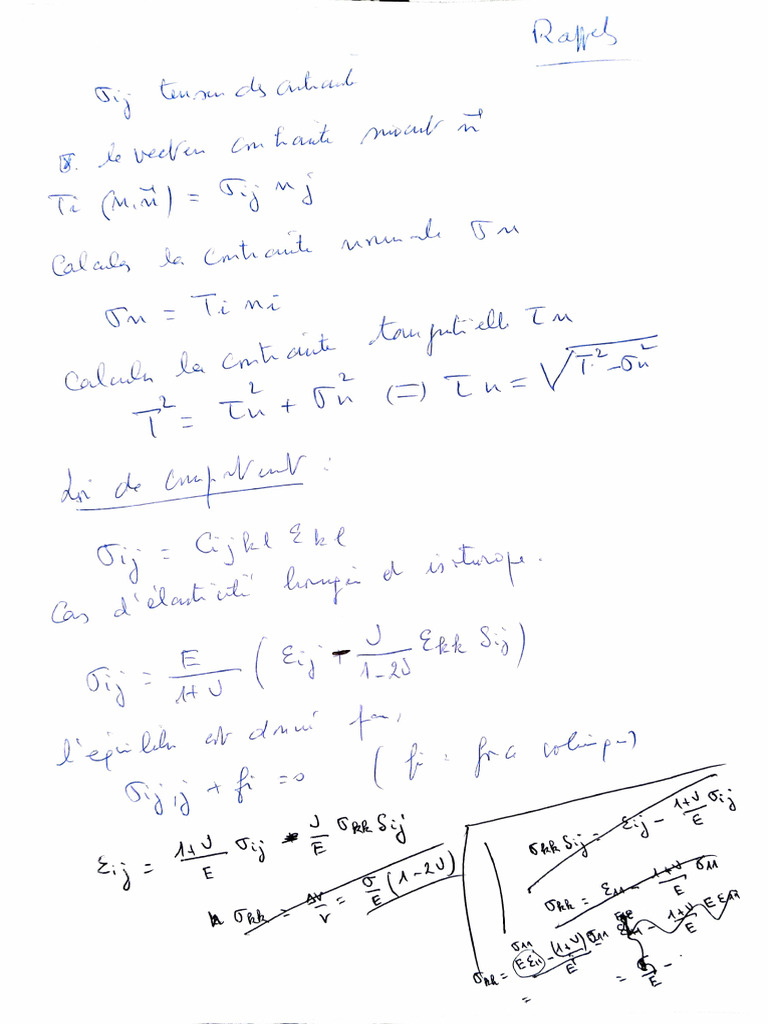 Rappels
σij tenseur des contrainte
le vecteur contrainte suivant n⃗
Ti (M, n⃗) = σij nj
Calculer la contrainte normale σn
σn = Ti ni
Calculer la contrainte tangentielle τn
T² = τn² + σn² (=) τn = √(T² - σn²)
Loi de comportement :
σij = Cijkl εkl
Cas d'élasticité isotrope.
σij = E/(1+ν) ( εij + ν/(1-2ν) εkk δij )
l'équilibre est donné par,
σij,j + fi = 0 ( fi : force volumique)
εij = (1+ν)/E σij - ν/E σkk δij
σkk = Δv/v = σ/E (1-2ν)
σkk δij = εij - (1+ν)/E σij
σkk = ε11 - (1+ν)/E σ11